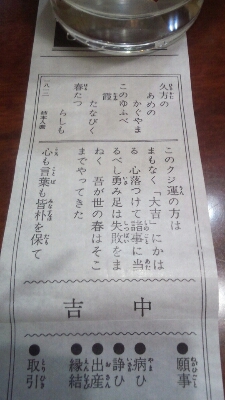 久方の
あめの
かぐやま
このゆふべ
霞
たなびく
春たつ
らしも
一八一二 柿本人麿
このクジ運の方は
まもなく「大吉」にかは
る 心落つけて諸事に当
るべし勇み足は失敗をま
ねく 吾が世の春はそこ
までやってきた
心も言葉も皆朴を保て
中吉
●願事
●病ひ
●諍ひ
●出産
●縁結
●取引